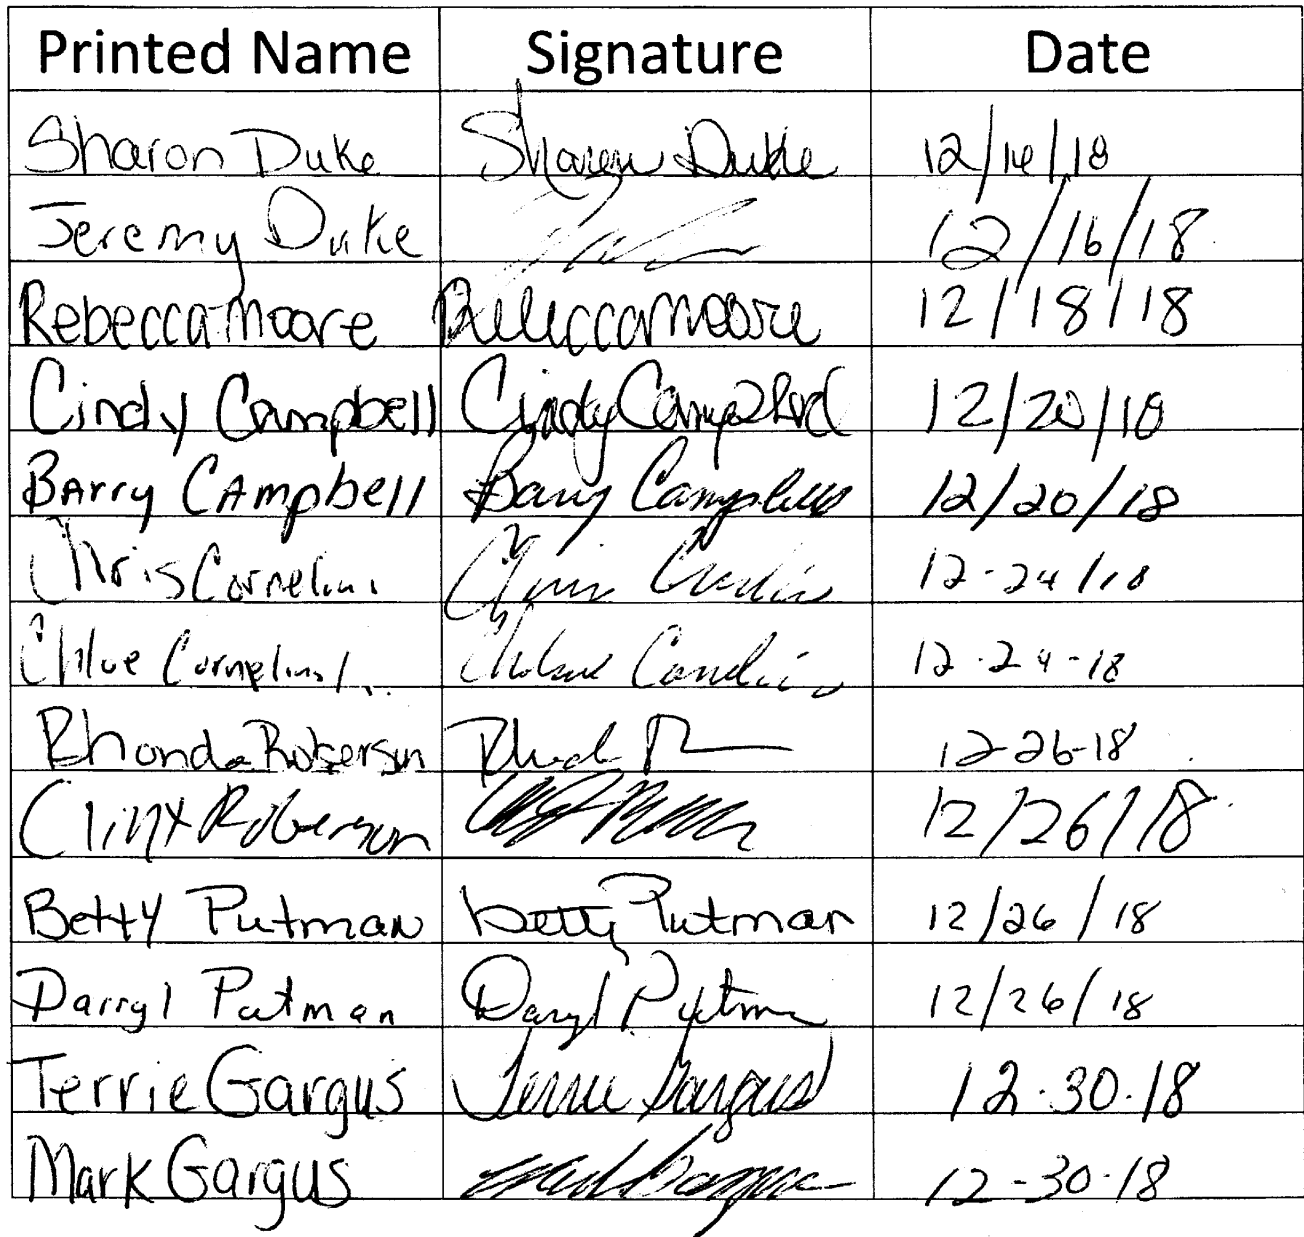 Printed Name Signature Date
Sharon Duke Sharon Duke 12/16/18
Jeremy Duke 12/16/18
Rebecca Moore Rebecca Moore 12/18/18
Cindy Campbell Cindy Campbell 12/20/18
Barry Campbell Barry Campbell 12/20/18
Chris Cornelius Chris Cornelius 12-24/18
Chloe Cornelius 12-24-18
Rhonda Roberson 12-26-18
Clint Roberson 12/26/18
Betty Putman Betty Putman 12/26/18
Darryl Putman Darryl Putman 12/26/18
Terrie Gargus Terrie Gargus 12-30-18
Mark Gargus Mark Gargus 12-30-18